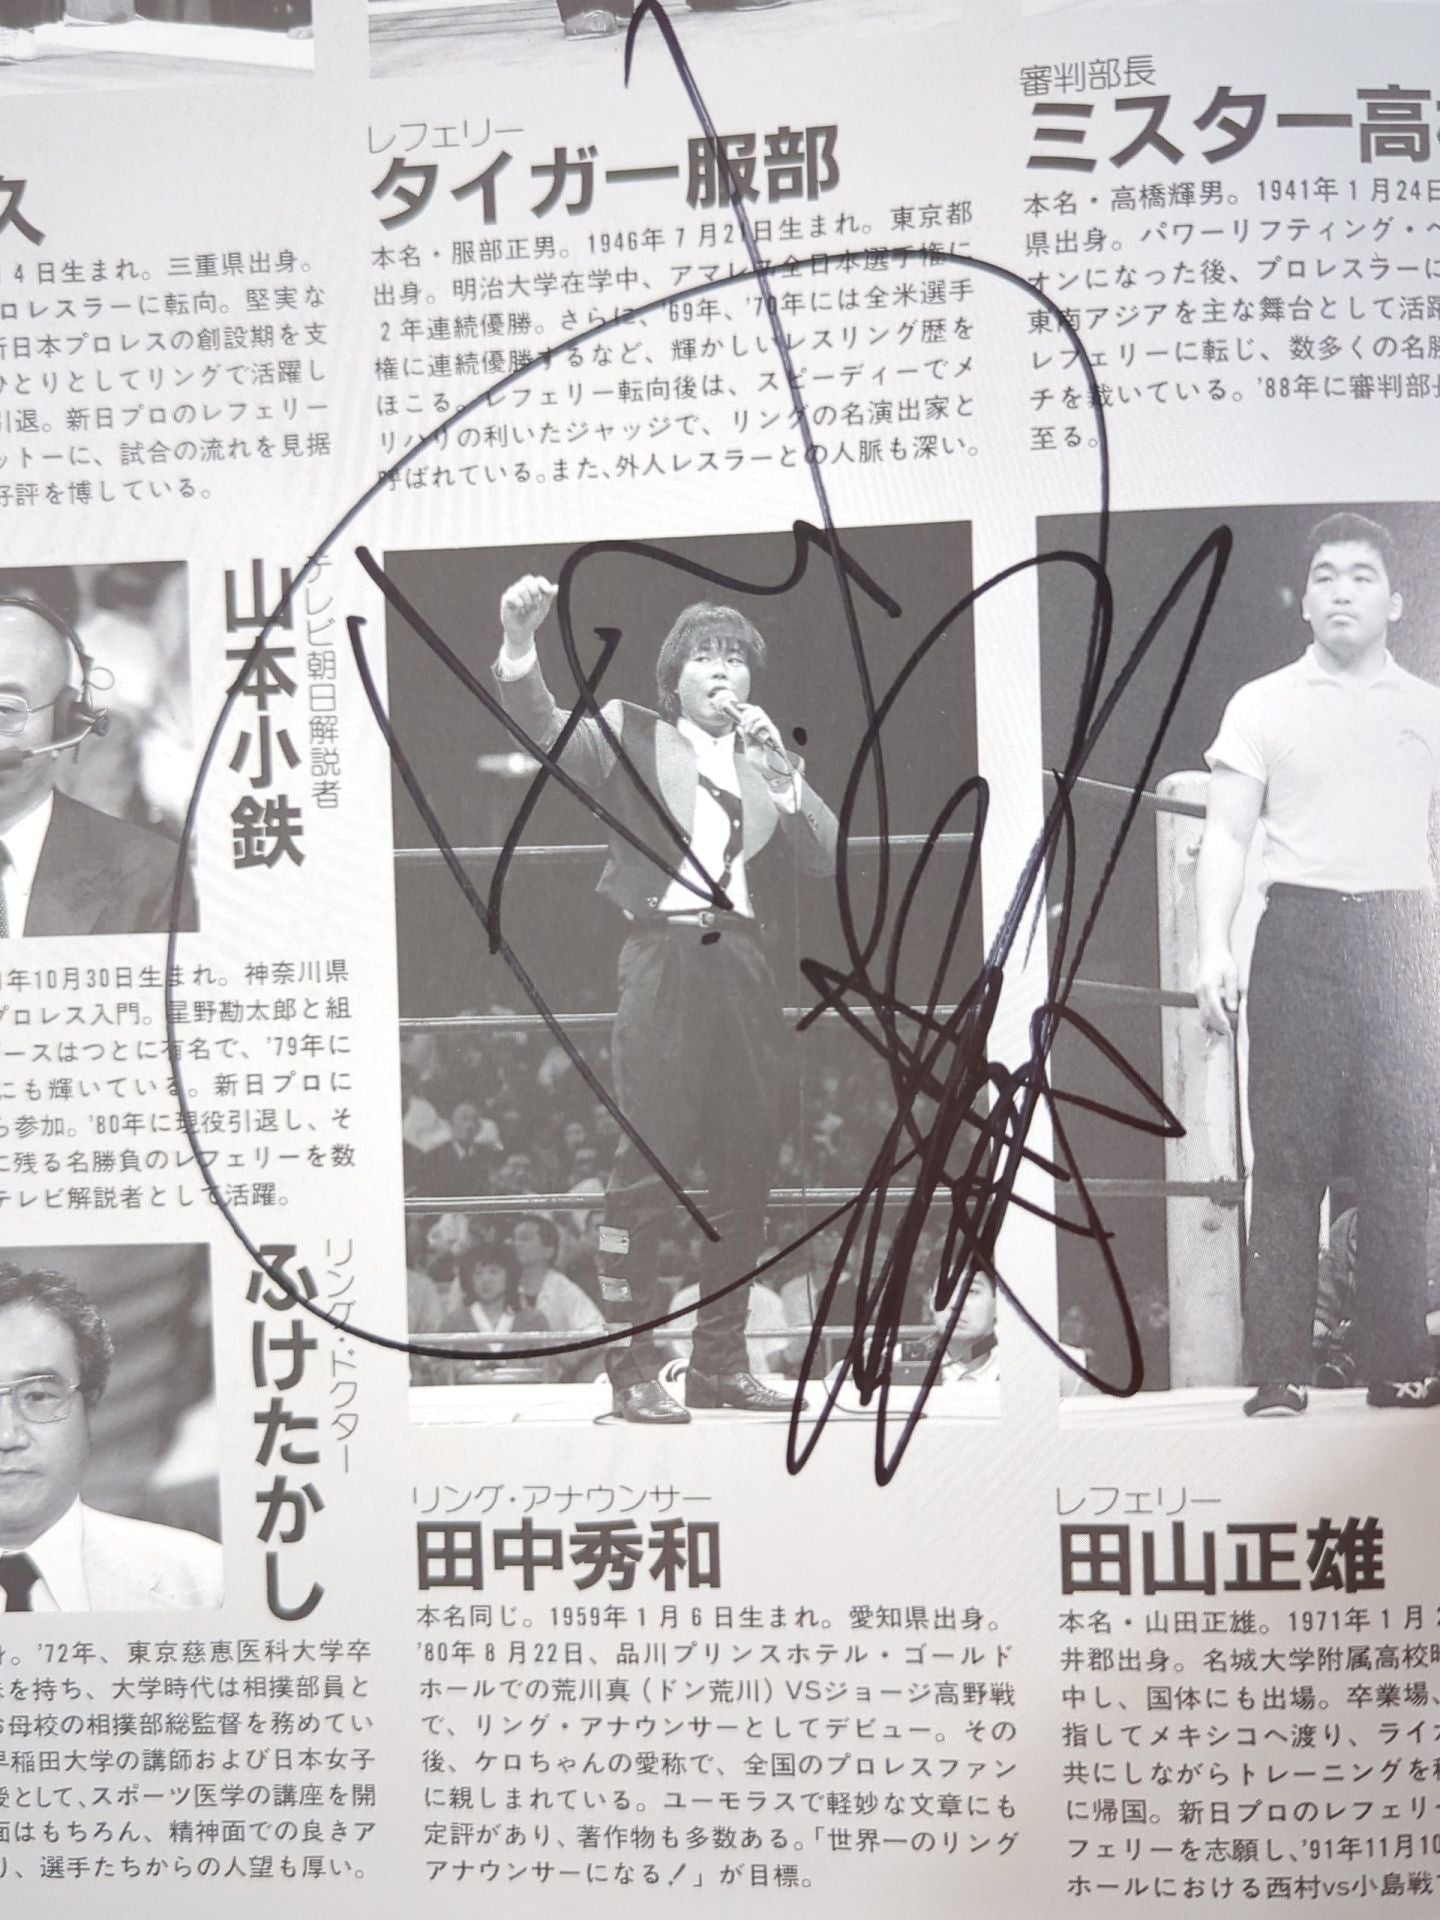 久
4日生まれ。三重県出身。
ロレスラーに転向。堅実な
新日本プロレスの創設期を支
ひとりとしてリングで活躍し
引退。新日プロのレフェリー
ットーに、試合の流れを見据
好評を博している。
レフェリー
タイガー服部
本名・服部正男。1946年7月21日生まれ。東京都
出身。明治大学在学中、アマレス全日本選手権に
2年連続優勝。さらに、'69年、'70年には全米選手
権に連続優勝するなど、輝かしいレスリング歴を
ほこる。レフェリー転向後は、スピーディーでメ
リハリの利いたジャッジで、リングの名演出家と
呼ばれている。また、外人レスラーとの人脈も深い。
審判部長
ミスター高
本名・高橋輝男。1941年1月24日
県出身。パワーリフティング・ヘ
オンになった後、プロレスラーに
東南アジアを主な舞台として活躍
レフェリーに転じ、数多くの名勝
チを裁いている。'88年に審判部長
至る。
テレビ朝日解説者
山本小鉄
年10月30日生まれ。神奈川県
プロレス入門。星野勘太郎と組
ースはつとに有名で、'79年に
にも輝いている。新日プロに
ら参加。'80年に現役引退し、そ
に残る名勝負のレフェリーを数
テレビ解説者として活躍。
リング・ドクター
ふけたかし
。'72年、東京慈恵医科大学卒
を持ち、大学時代は相撲部員と
お母校の相撲部総監督を務めてい
早稲田大学の講師および日本女子
授として、スポーツ医学の講座を開
面はもちろん、精神面での良きア
り、選手たちからの人望も厚い。
リング・アナウンサー
田中秀和
本名同じ。1959年1月6日生まれ。愛知県出身。
'80年8月22日、品川プリンスホテル・ゴールド
ホールでの荒川真（ドン荒川）VSジョージ高野戦
で、リング・アナウンサーとしてデビュー。その
後、ケロちゃんの愛称で、全国のプロレスファン
に親しまれている。ユーモラスで軽妙な文章にも
定評があり、著作物も多数ある。「世界一のリング
アナウンサーになる！」が目標。
レフェリー
田山正雄
本名・山田正雄。1971年1月2
井郡出身。名城大学附属高校時
中し、国体にも出場。卒業場、
指してメキシコへ渡り、ライオ
共にしながらトレーニングを積
に帰国。新日プロのレフェリー
フェリーを志願し、'91年11月10
ホールにおける西村vs小島戦で